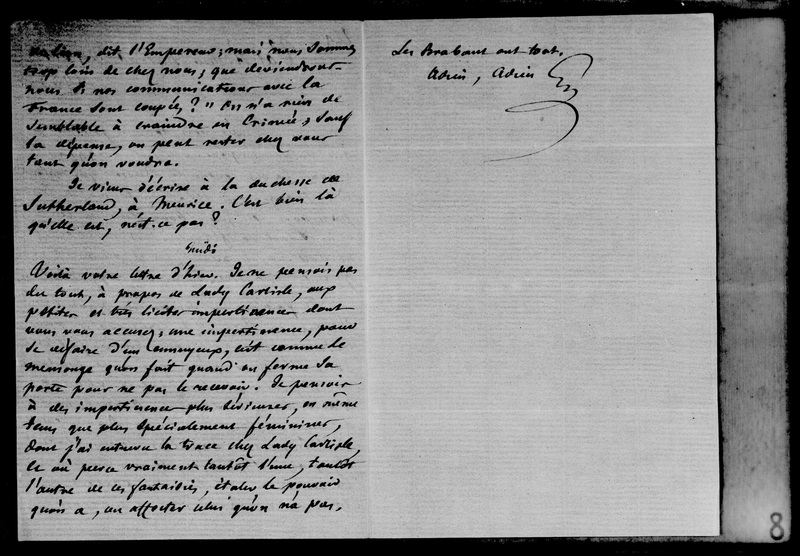 dit l'Empereur ; mais nous sommes
trop loin de chez nous ; que deviendront-
nous si nos communications avec la
France sont coupées ? " On n'a rien de
semblable à craindre en Crimée ; sauf
la dépense, on peut rester chez vous
tant qu'on voudra.
Je viens d'écrire à la duchesse de
Sutherland, à Meurice. C'est bien là
qu'elle est, n'est-ce pas ?
Midi
Voilà votre lettre d'hier. Je ne pensais pas
du tout, à propos de Lady Carlisle, aux
petites et très licites impertinences dont
vous vous accusez ; une impertinence, pour
se défaire d'un ennuyeux, c'est comme le
mensonge qu'on fait quand on ferme sa
porte pour ne pas le recevoir. Je pensois
à des impertinences plus sérieuses, en même
tems que plus spécialement féminines,
dont j'ai entrevu la trace chez Lady Carlisle,
et où perce vraiment tantôt l'une, tantôt
l'autre de ces fantaisies, étaler le pouvoir
qu'on a, ou affecter celui qu'on n'a pas.
Les Brabant ont tout.
Adieu, Adieu
8